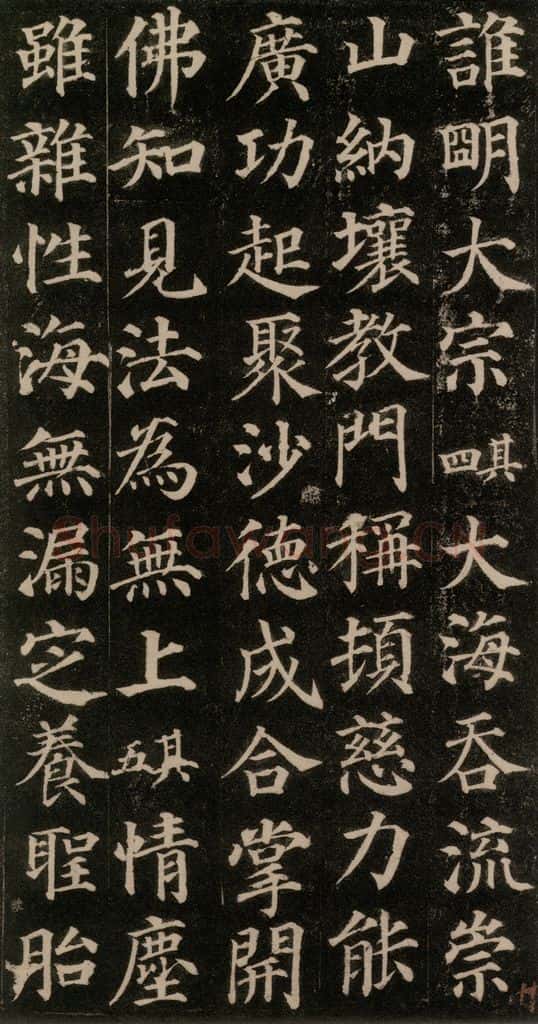 誰朙大宗其四大海吞流崇
山納壤教門稱頓慈力能
廣功起聚沙德成合掌開
佛知見法為無上其五情塵
雖雜性海無漏㝎養聖胎
Shufawang.CN